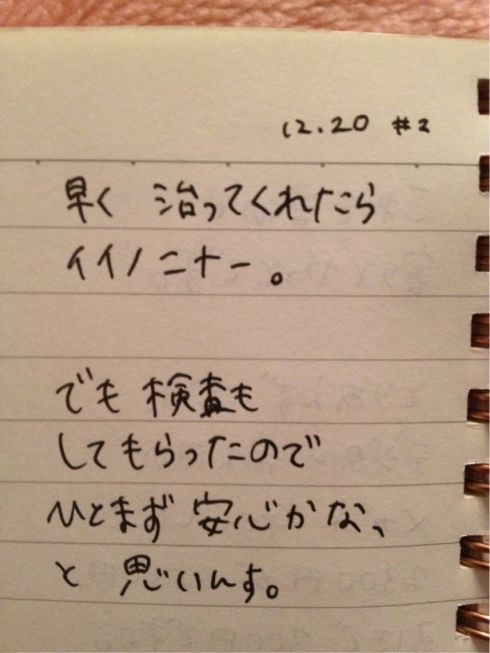 12.20 #2
早く 治ってくれたら
イイノニナー。
でも 検査も
してもらったので
ひとまず 安心かな、
と 思いんす。